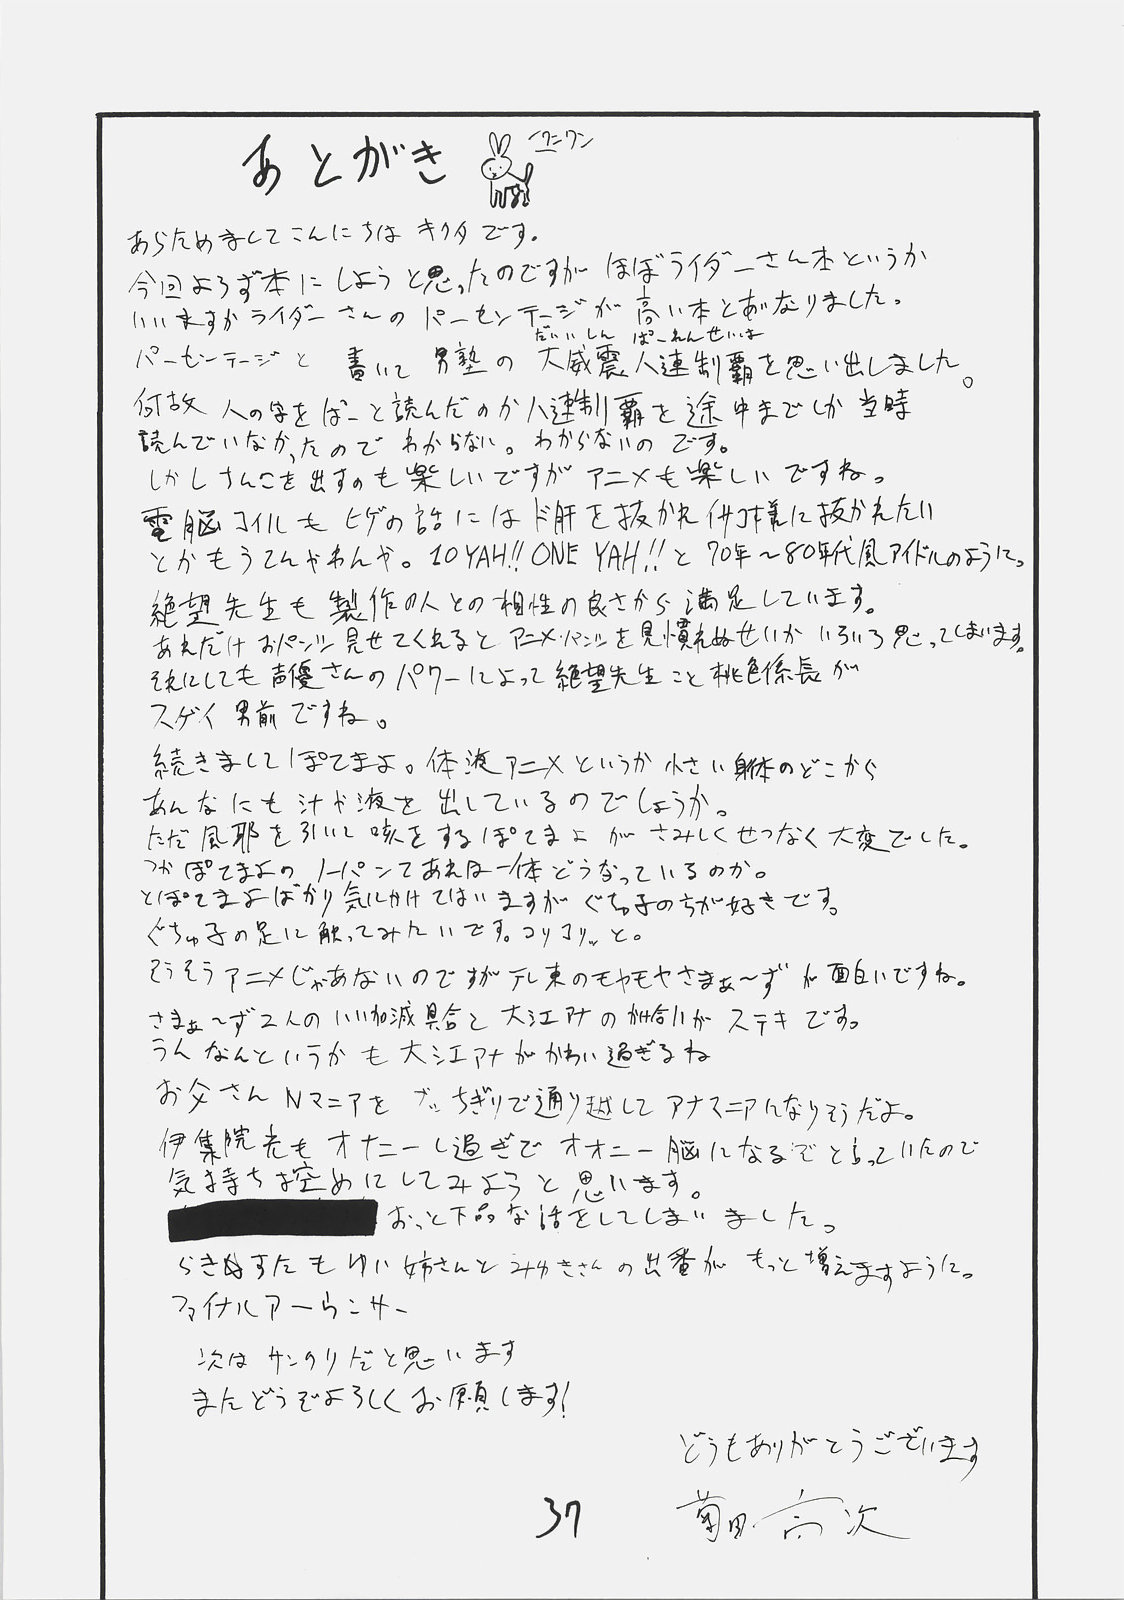 あとがき
ワンワン
あらためましてこんにちは キクタです。
今回よろず本にしようと思ったのですが ほぼライダーさん本というか
いいますかライダーさんのパーセンテージが高い本とあいなりました。
だいいしん ぱーれんせいは
パーセンテージと 書いて 男塾の 大威震八連制覇を思い出しました。
何故 八の字をぱーと読んだのか八連制覇を途中までしか当時
読んでいなかったのでわからない。わからないのです。
しかしさんこを出すのも楽しいですがアニメも楽しいですね。
電脳コイルもヒゲの話にはド肝を抜かれイサコ様に抜かれたい
とかもうてんやわんや。10YAH!! ONE YAH!!と70年〜80年代風アイドルのように。
絶望先生も製作の人との相性の良さから満足しています。
あれだけおパンツ見せてくれるとアニメ・パンツを見慣れぬせいかいろいろ思ってしまいます。
それにしても声優さんのパワーによって絶望先生こと桃色係長が
スゲイ男前ですね。
続きましてぽてまよ。体液アニメというか小さい身体のどこから
あんなにも汁や液を出しているのでしょうか。
ただ風邪を引いて咳をするぽてまよがさみしくせつなく大変でした。
つかぽてまよのノーパンてあれは一体どうなっているのか。
とぽてまよばかり気にかけてはいますがぐちゅ子の方が好きです。
ぐちゅ子の足に触ってみたいです。コリコリッと。
そうそうアニメじゃあないのですがテレ東のモヤモヤさまぁ〜ずが面白いですね。
さまぁ〜ず2人のいい加減具合と大江アナの絡みがステキです。
うんなんというかも大江アナがかわい過ぎるね
お父さんNマニアをブッちぎりで通り越してアナマニアになりそうだよ。
伊集院光もオナニーし過ぎでオオニー脳になるでと言っていたので
気持ち控めにしてみようと思います。
おっと下品な話をしてしまいました。
らき☆すたもゆい姉さんとみゆきさんの出番がもっと増えますように。
ファイナルアーらンサー
次はサンクリだと思います
またどうぞよろしくお願します!
どうもありがとうございます
菊田高次
37